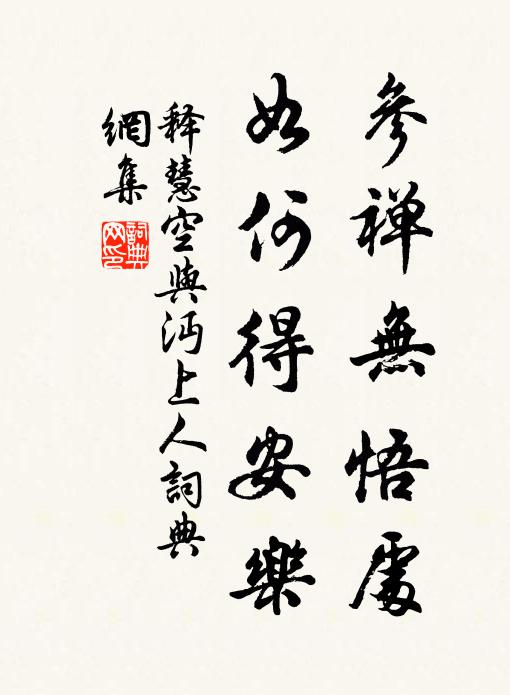 參禅無悟處
如何得安樂
释慧空與沔上人詞典
網集
詞典网印